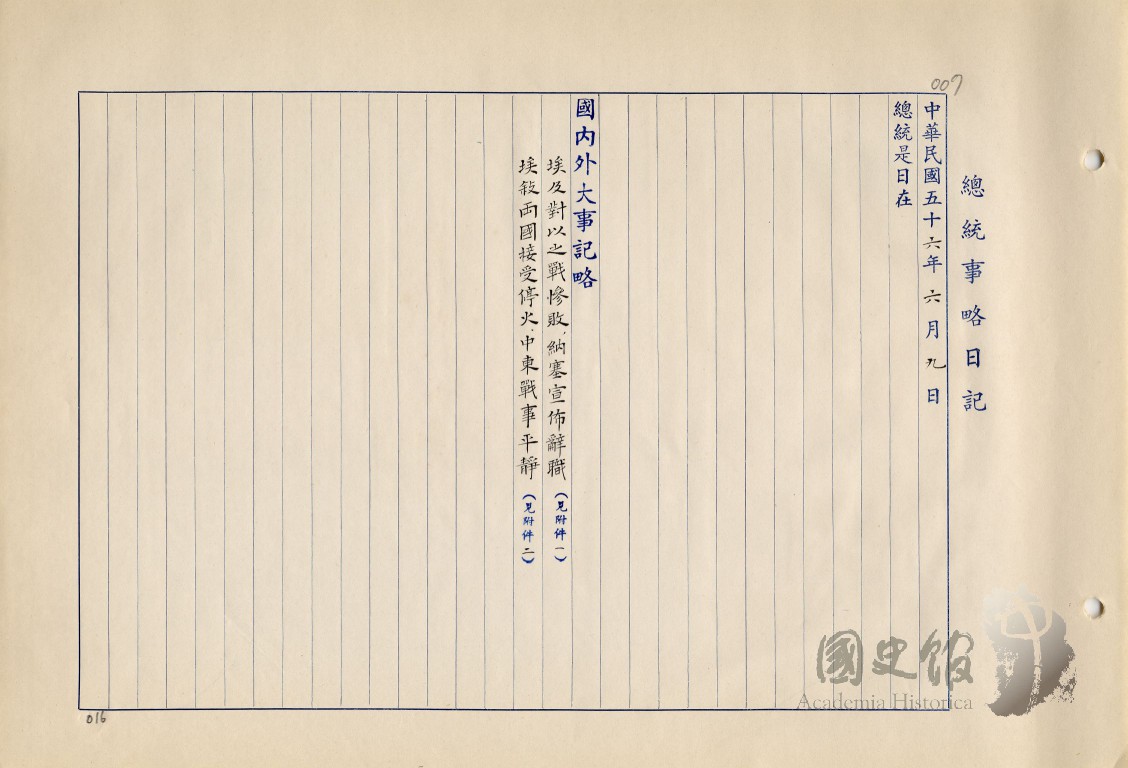 007
總統事略日記
中華民國五十六年六月九日
總統是日在
國內外大事記略
埃及對以之戰慘敗，納塞宣佈辭職（見附件一）
埃敍両國接受停火，中東戰事平靜（見附件二）
016
國史館
Academia Historica